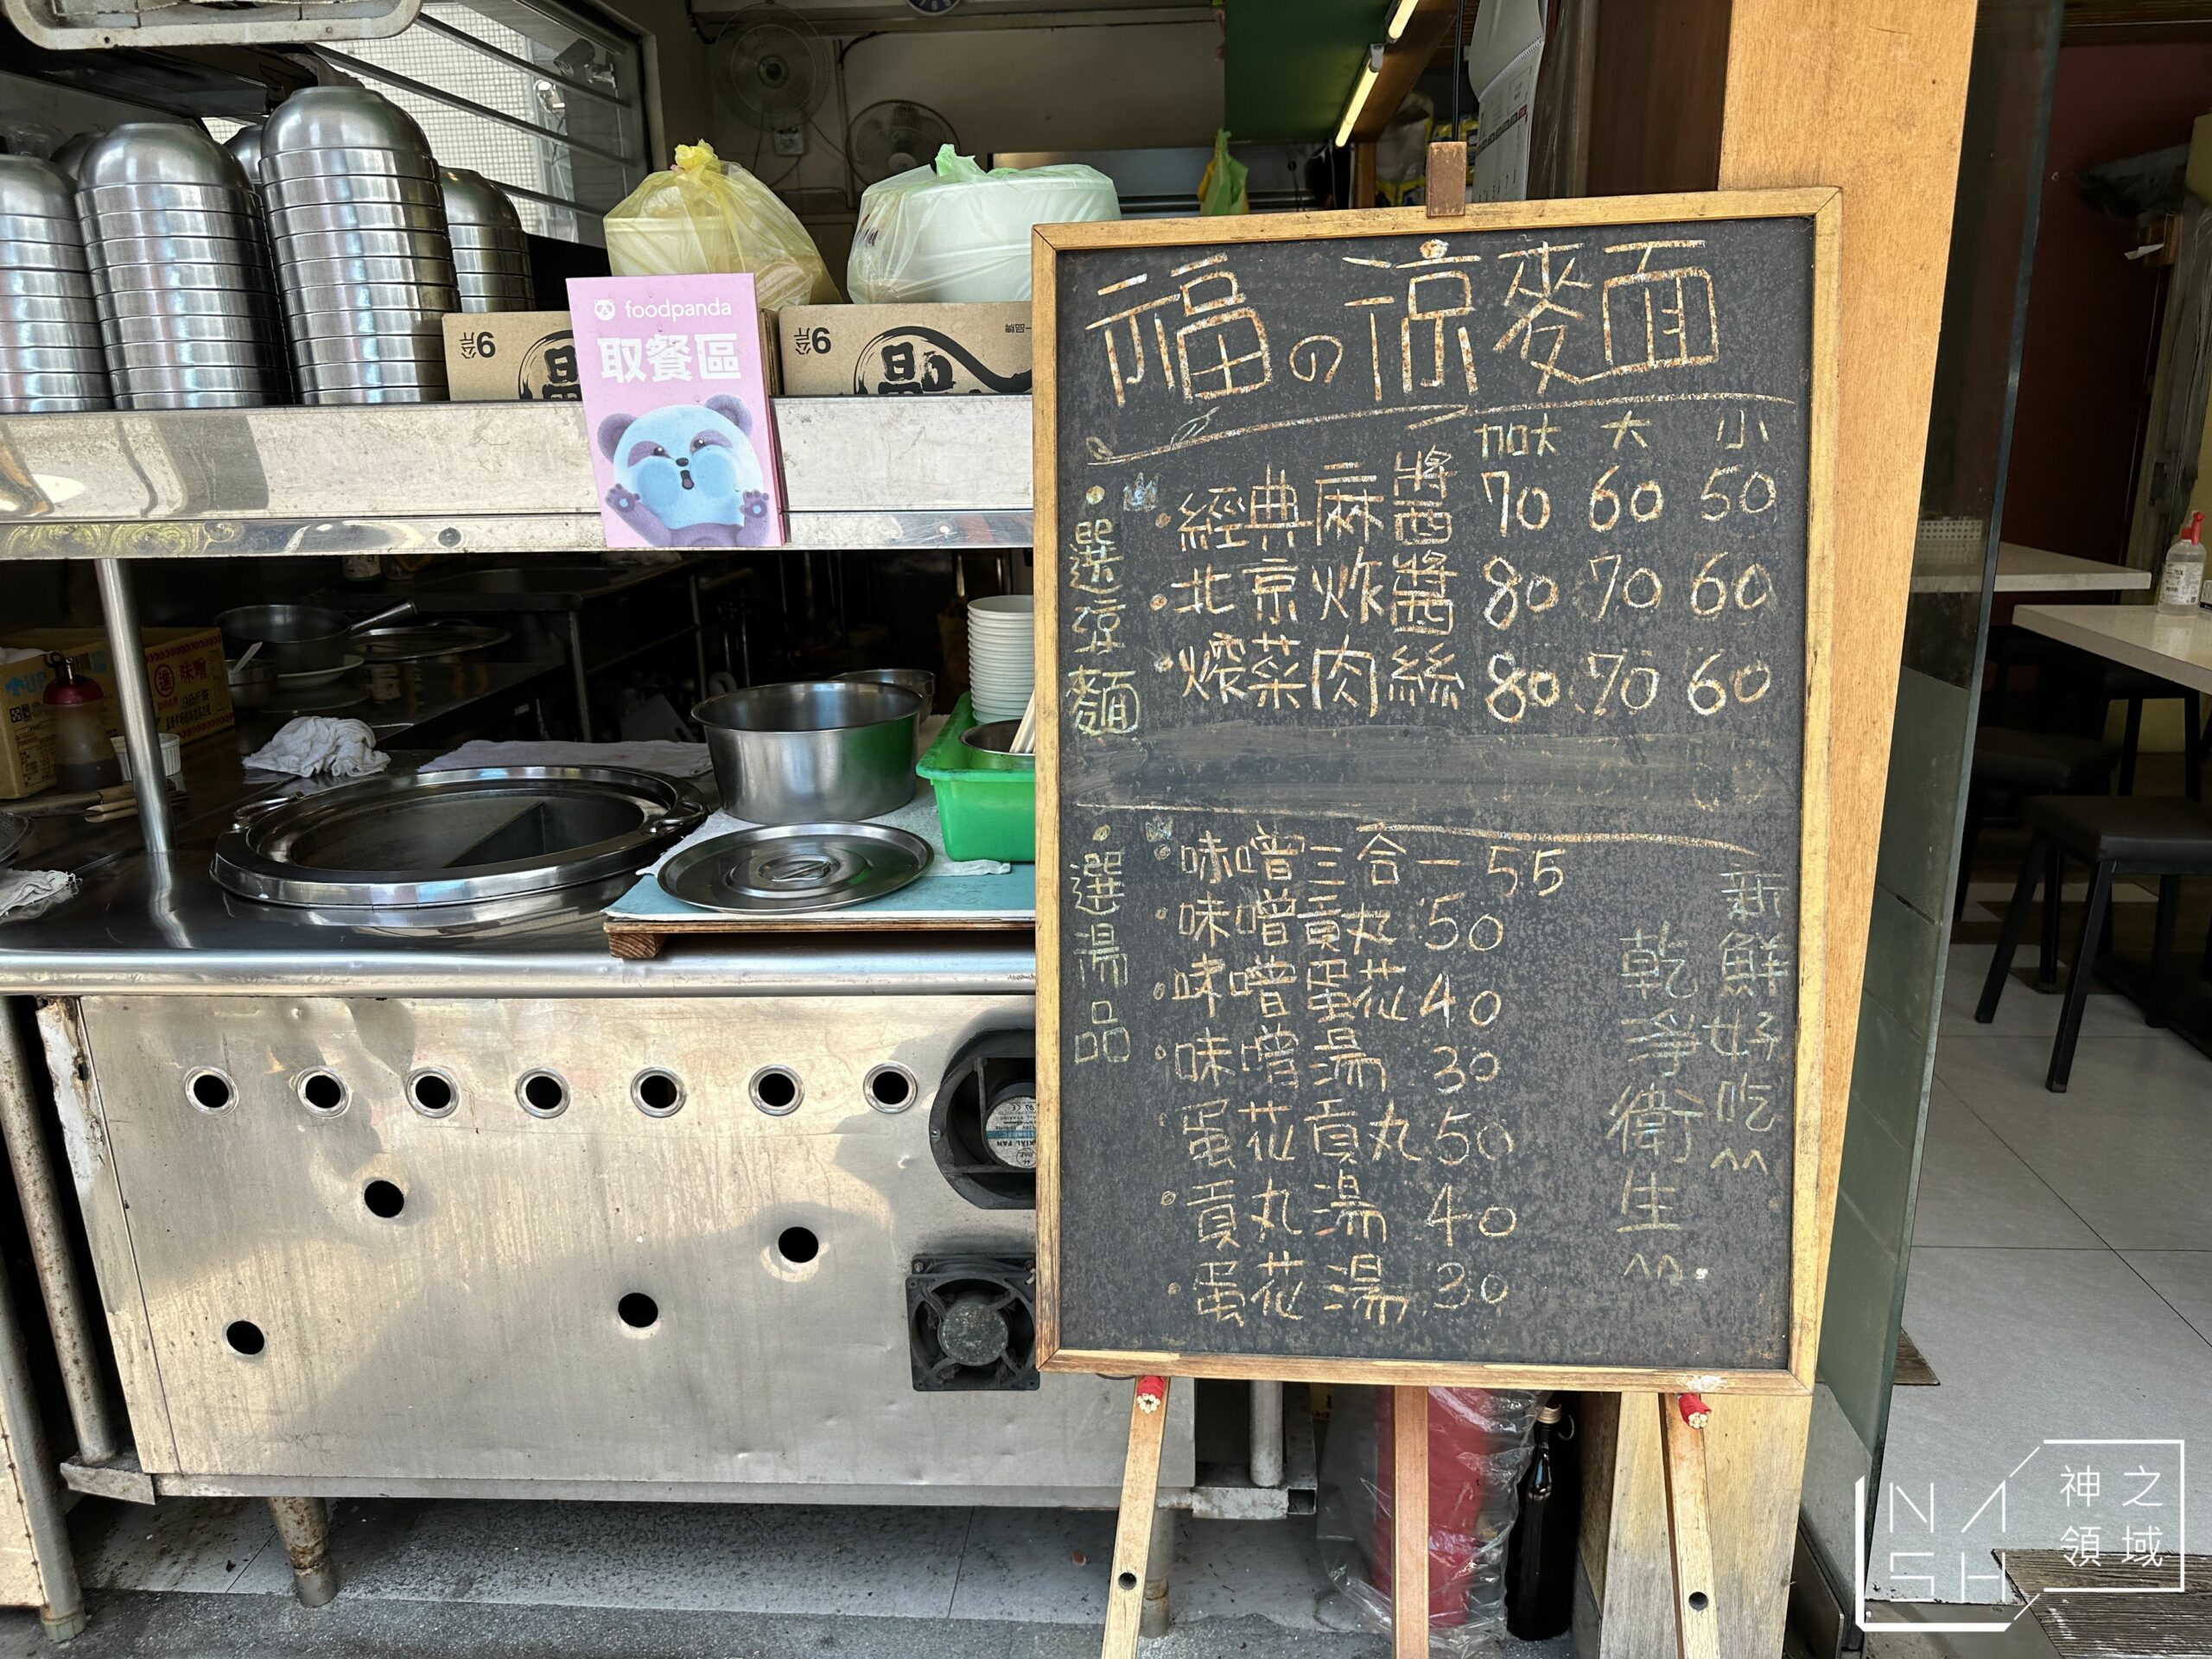 foodpanda
取餐區
6公斤
6公斤
一品牌
味噌
UP
AXIAL FAN
福の涼麵
加大 大 小
選涼麵
經典麻醬 70 60 50
北京炸醬 80 70 60
燻菜肉絲 80 70 60
選湯品
味噌三合一 55
味噌貢丸 50
味噌蛋花 40
味噌湯 30
蛋花貢丸 50
貢丸湯 40
蛋花湯 30
新鮮好吃^^
乾淨衛生^^
NASH
神之
領域